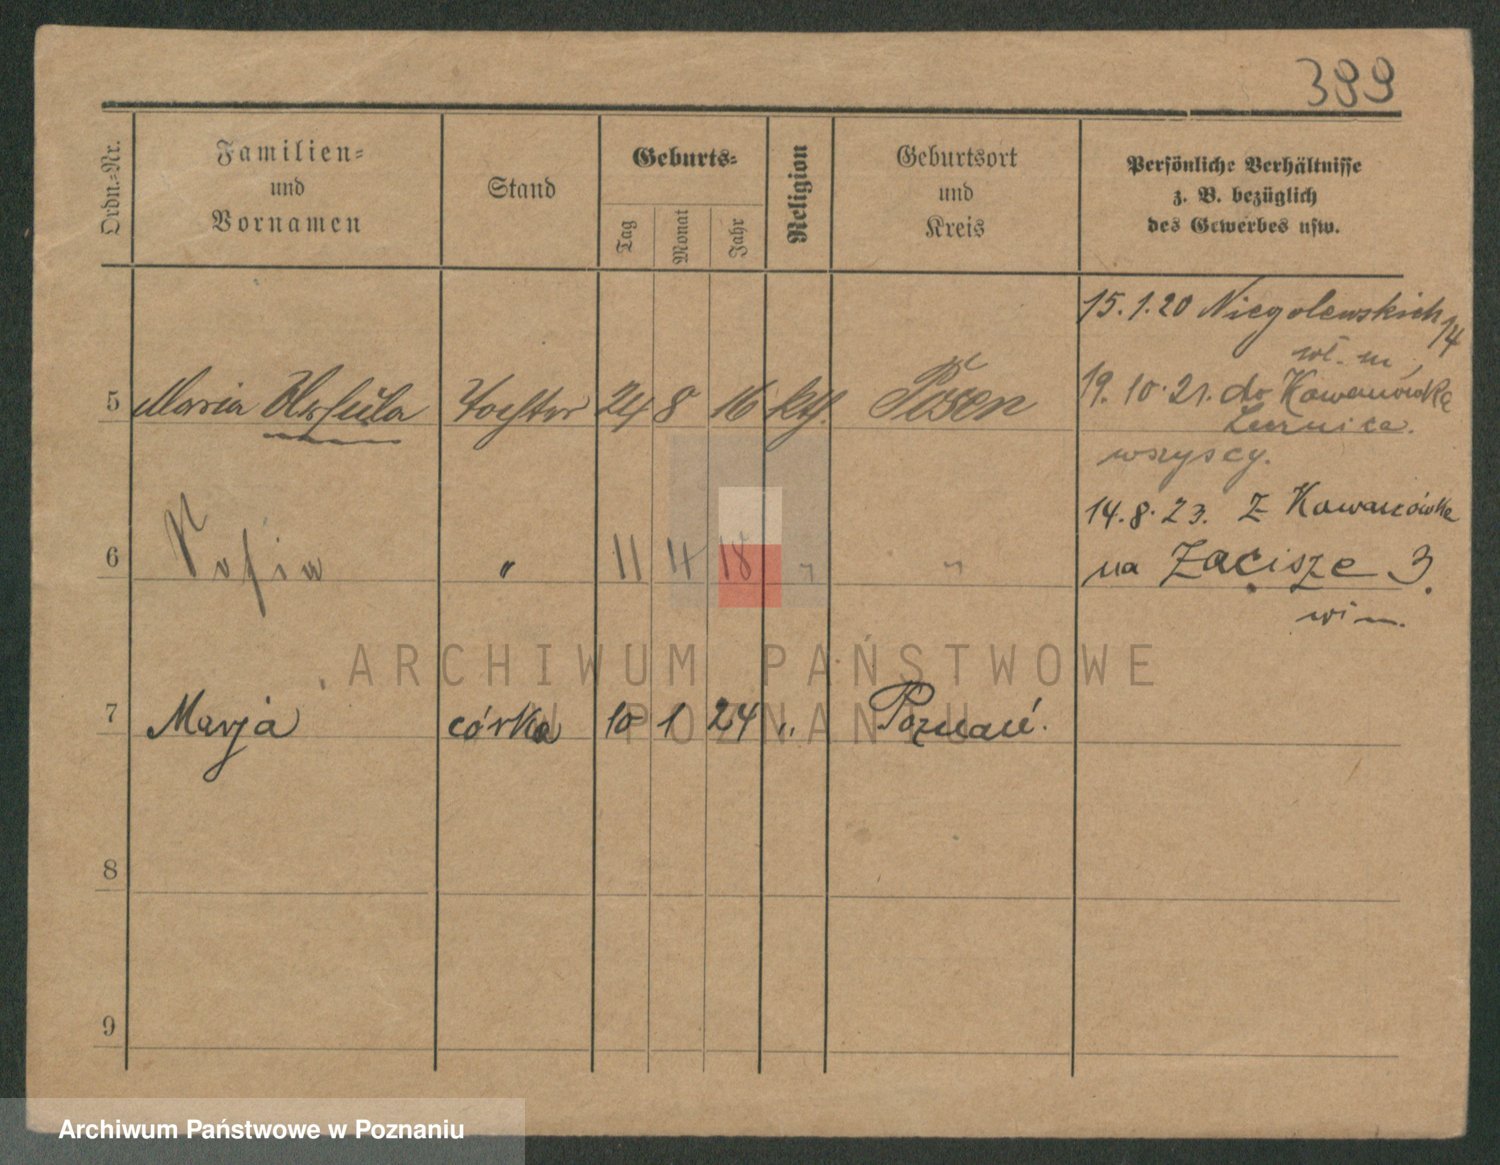 399
Ordn.-Nr.
Familien-
und
Vornamen
Stand
Geburts-
Tag
Monat
Jahr
Religion
Geburtsort
und
Kreis
Persönliche Verhältnisse
z. B. bezüglich
des Gewerbes usw.
15.1.20 Niegolewskich 14
5 Maria Ursula Tochter 24 8 16 kth. Posen
19.10.21. do Kowanówka
wszyscy.
14.8.23. z Kowanówka
6 Sofia " 11 4 18 " "
na Zacisze 3.
ARCHIWUM PAŃSTWOWE
W POZNANIU
7 Marja córka 10 1 24 " Poznań.
8
9
Archiwum Państwowe w Poznaniu